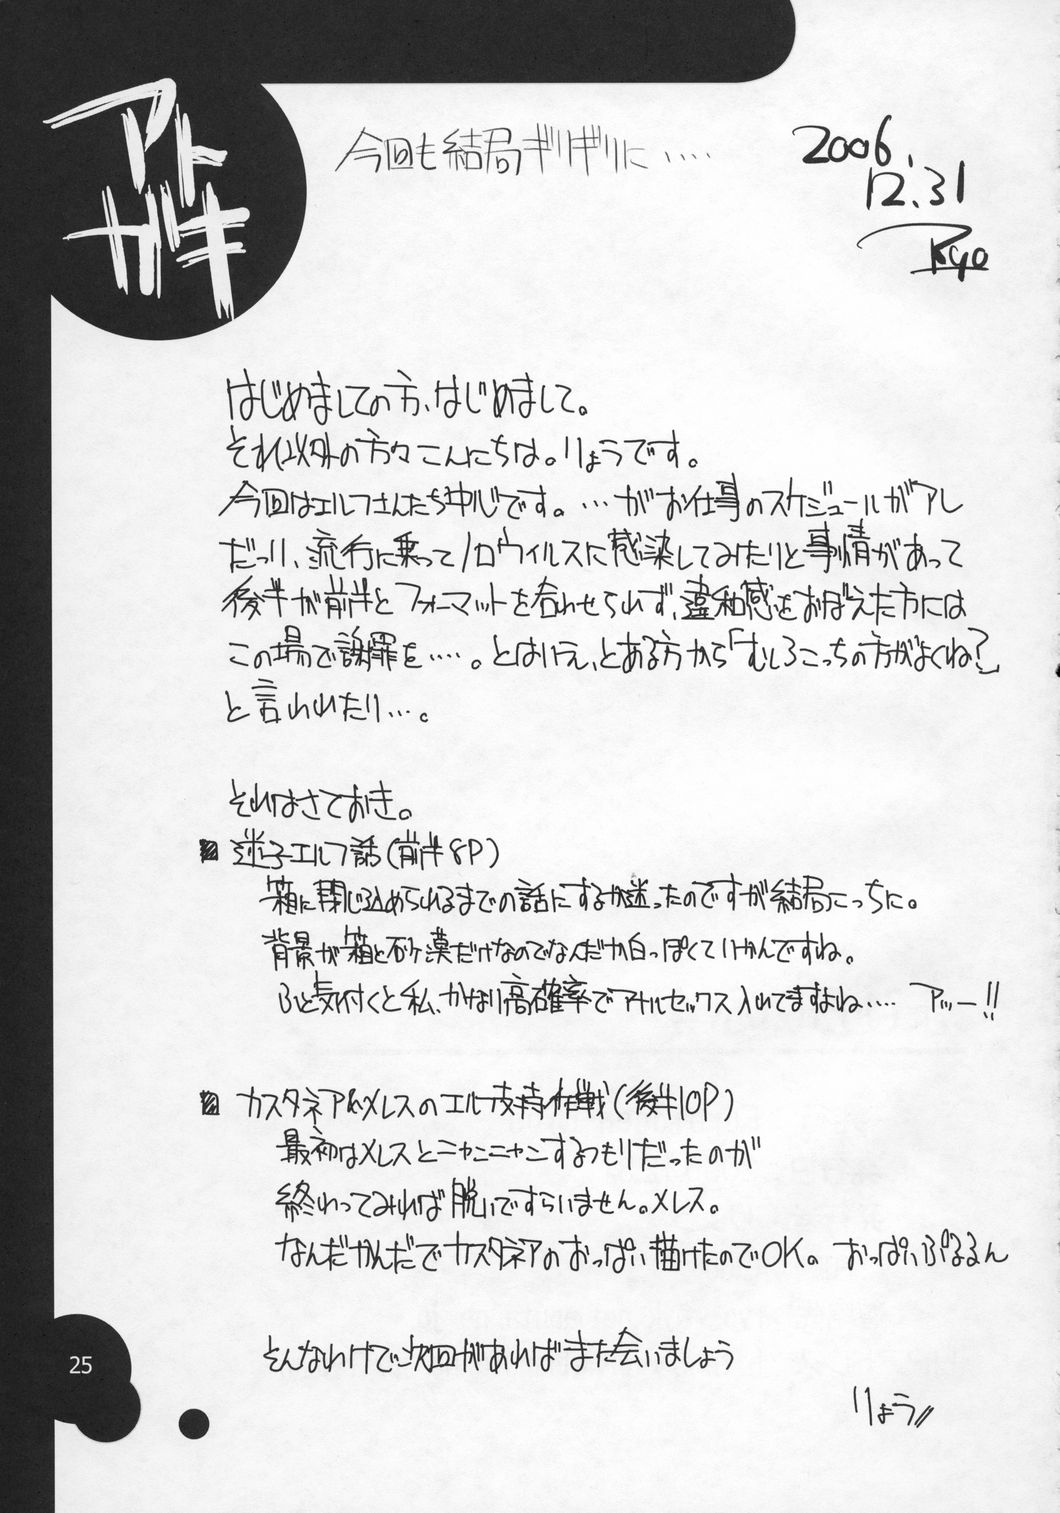 アトガキ
今回も結局ギリギリに‥‥
2006.
12.31
Ryo
はじめましての方、はじめまして。
それ以外の方々こんにちは。りょうです。
今回はエルフさんたち中心です。…がお仕事のスケジュールがアレ
だっり、流行に乗ってノロウィルスに感染してみたりと事情があって
後半が前半とフォーマットを合わせられず、違和感をおぼえた方には
この場で謝罪を‥‥。とはいえ、とある方から「むしろこっちの方がよくね?」
と言われたり…。
それはさておき。
■ 迷子エルフ話(前半8P)
箱に閉じ込められるまでの話にするか迷ったのですが結局こっちに。
背景が箱と砂漠だけなのでなんだか白っぽくていかんですね。
ふと気付くと私、かなり高確率でアナルセックス入れてますよね‥‥ アッー!!
■ カスタネア&メレスのエルフ支持作戦(後半10P)
最初はメレスとニャンニャンするつもりだったのが
終わってみれば脱いですらいません。メレス。
なんだかんだでカスタネアのおっぱい描けたのでOK。 おっぱいぷるるん
そんなわけで次回があればまた会いましょう
りょう//
25